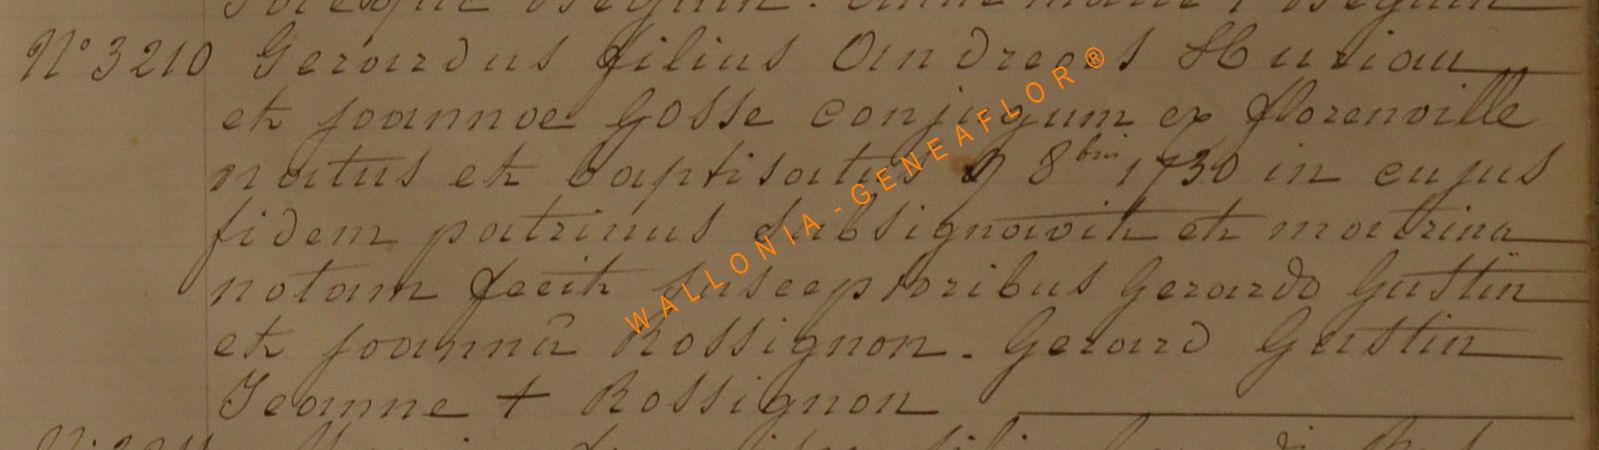 N° 3210 Gerardus filius Andreas Huriau
et joannae Gosse conjugum ex florenville
natus et baptisatus 9 8bris 1730 in cujus
fidem patrinus subsignavit et matrina
notam fecit susceptoribus Gerardo Gustin
et joannâ Rossignon. Gerard Gustin
Jeanne + Rossignon
WALLONIA-GENEAFLOR®